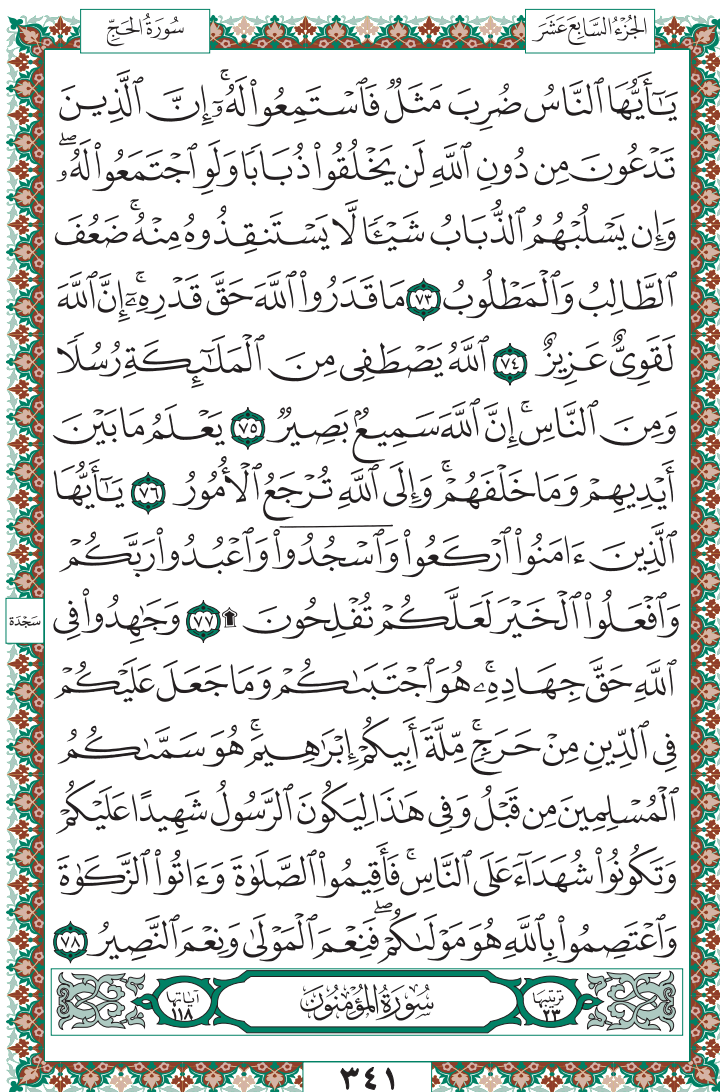 الجُزْءُ السَّابِعَ عَشَرَ
سُورَةُ الحَجّ
يَٰٓأَيُّهَا ٱلنَّاسُ ضُرِبَ مَثَلٌ فَٱسْتَمِعُوا۟ لَهُۥٓ ۚ إِنَّ ٱلَّذِينَ
تَدْعُونَ مِن دُونِ ٱللَّهِ لَن يَخْلُقُوا۟ ذُبَابًا وَلَوِ ٱجْتَمَعُوا۟ لَهُۥ ۖ
وَإِن يَسْلُبْهُمُ ٱلذُّبَابُ شَيْـًٔا لَّا يَسْتَنقِذُوهُ مِنْهُ ۚ ضَعُفَ
ٱلطَّالِبُ وَٱلْمَطْلُوبُ ٧٣ مَا قَدَرُوا۟ ٱللَّهَ حَقَّ قَدْرِهِۦٓ ۚ إِنَّ ٱللَّهَ
لَقَوِىٌّ عَزِيزٌ ٧٤ ٱللَّهُ يَصْطَفِى مِنَ ٱلْمَلَٰٓئِكَةِ رُسُلًا
وَمِنَ ٱلنَّاسِ ۚ إِنَّ ٱللَّهَ سَمِيعٌۢ بَصِيرٌ ٧٥ يَعْلَمُ مَا بَيْنَ
أَيْدِيهِمْ وَمَا خَلْفَهُمْ ۚ وَإِلَى ٱللَّهِ تُرْجَعُ ٱلْأُمُورُ ٧٦ يَٰٓأَيُّهَا
ٱلَّذِينَ ءَامَنُوا۟ ٱرْكَعُوا۟ وَٱسْجُدُوا۟ وَٱعْبُدُوا۟ رَبَّكُمْ
وَٱفْعَلُوا۟ ٱلْخَيْرَ لَعَلَّكُمْ تُفْلِحُونَ ۩ ٧٧ وَجَٰهِدُوا۟ فِى
سَجْدَة
ٱللَّهِ حَقَّ جِهَادِهِۦ ۚ هُوَ ٱجْتَبَىٰكُمْ وَمَا جَعَلَ عَلَيْكُمْ
فِى ٱلدِّينِ مِنْ حَرَجٍ ۚ مِّلَّةَ أَبِيكُمْ إِبْرَٰهِيمَ ۚ هُوَ سَمَّىٰكُمُ
ٱلْمُسْلِمِينَ مِن قَبْلُ وَفِى هَٰذَا لِيَكُونَ ٱلرَّسُولُ شَهِيدًا عَلَيْكُمْ
وَتَكُونُوا۟ شُهَدَآءَ عَلَى ٱلنَّاسِ ۚ فَأَقِيمُوا۟ ٱلصَّلَوٰةَ وَءَاتُوا۟ ٱلزَّكَوٰةَ
وَٱعْتَصِمُوا۟ بِٱللَّهِ هُوَ مَوْلَىٰكُمْ ۖ فَنِعْمَ ٱلْمَوْلَىٰ وَنِعْمَ ٱلنَّصِيرُ ٧٨
ترتيبها ٢٣
سُورَةُ المُؤْمِنُونَ
آياتها ١١٨
٣٤١